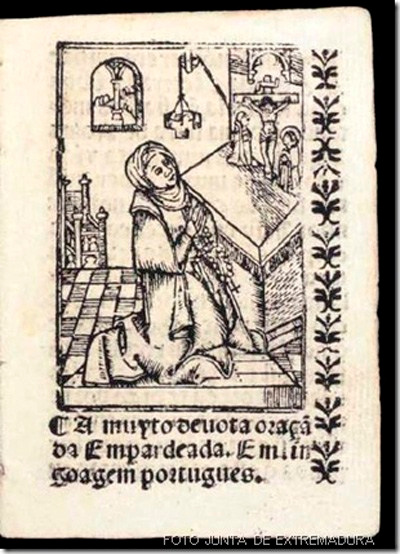 ☾ A muyto deuota oraçã
da Empardeada. Em lin
goagem portugues.
FOTO JUNTA DE EXTREMADURA